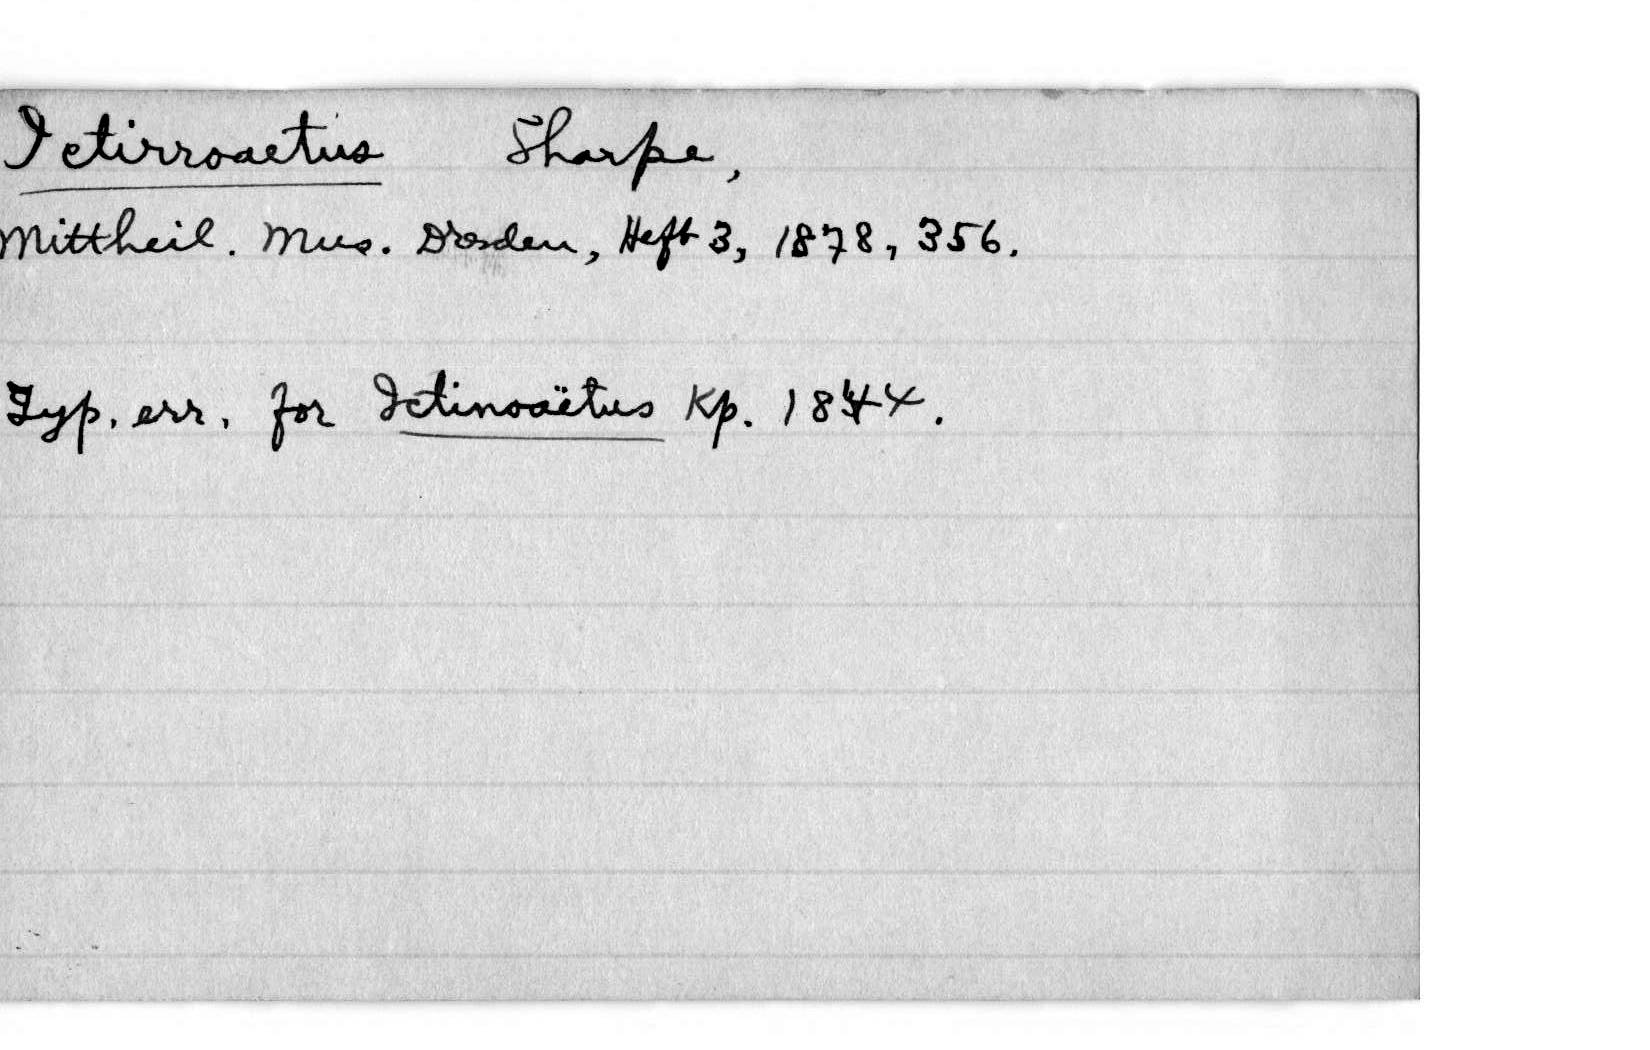 Ictirroaetus Sharpe,
Mittheil. Mus. Dresden, Heft 3, 1878, 356.
Typ. err. for Ictinoaëtus Kp. 1844.